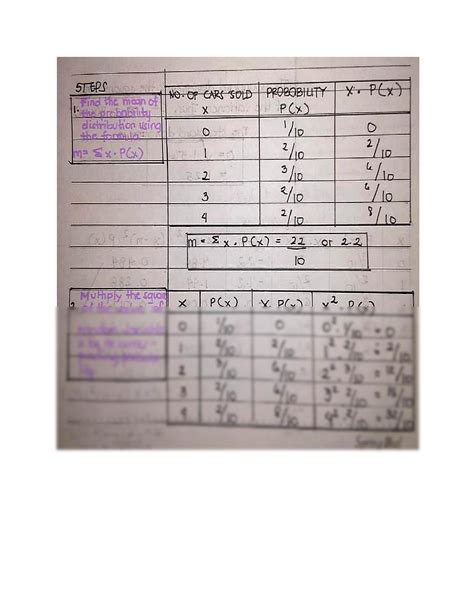 STEPS
1. Find the mean of
the probability
distribution using
the formula:
m= Σx·P(x)
NO. OF CARS SOLD PROBABILITY X · P(X)
X P(X)
0 1/10 0
1 2/10 2/10
2 3/10 6/10
3 2/10 6/10
4 2/10 8/10
m = Σ x · P(x) = 22/10 or 2.2
2. Multiply the square
of the value of
X P(X) X · P(X) X² · P(X)
0 1/10 0 0² · 1/10 = 0
1 2/10 2/10 1² · 2/10 = 2/10
2 3/10 6/10 2² · 3/10 = 12/10
3 2/10 6/10 3² · 2/10 = 18/10
4 2/10 8/10 4² · 2/10 = 32/10